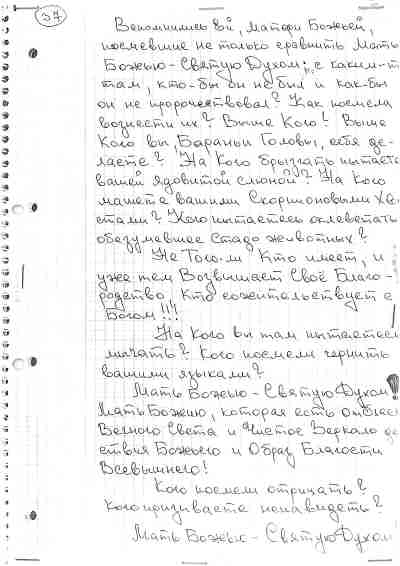 37
Вспомнились Ей, Матери Божьей,
посмевшие не только сравнить Мать
Божью-Святую Духом, с каким-т
там, кто-бы он не был и как-бы
он не пророчествовал? Как посмели
вознести их? Выше Кого! Выше
Кого вы, Бараньи Головы, себя де-
лаете? На Кого брызгать пытаете
вашей ядовитой слюной? На Кого
машете вашими Скорпионовыми Хво
стами? Кого пытаетесь оклеветать
обезумевшее Стадо животных?
Не Того-ли Кто имеет, и
уже тем Возвышает Своё Благо-
родство, Кто сожительствует с
Богом!!!
На Кого вы там пытаетесь
мычать? Кого посмели чернить
вашими языками?
Мать Божью-Святую Духом!
Мать Божию, которая есть отблес
Вечного Света и Чистое Зеркало де
ствия Божьего и Образ Благости
Всевышнего!
Кого посмели отрицать?
Кого призываете ненавидеть?
Мать Божью-Святую Духом